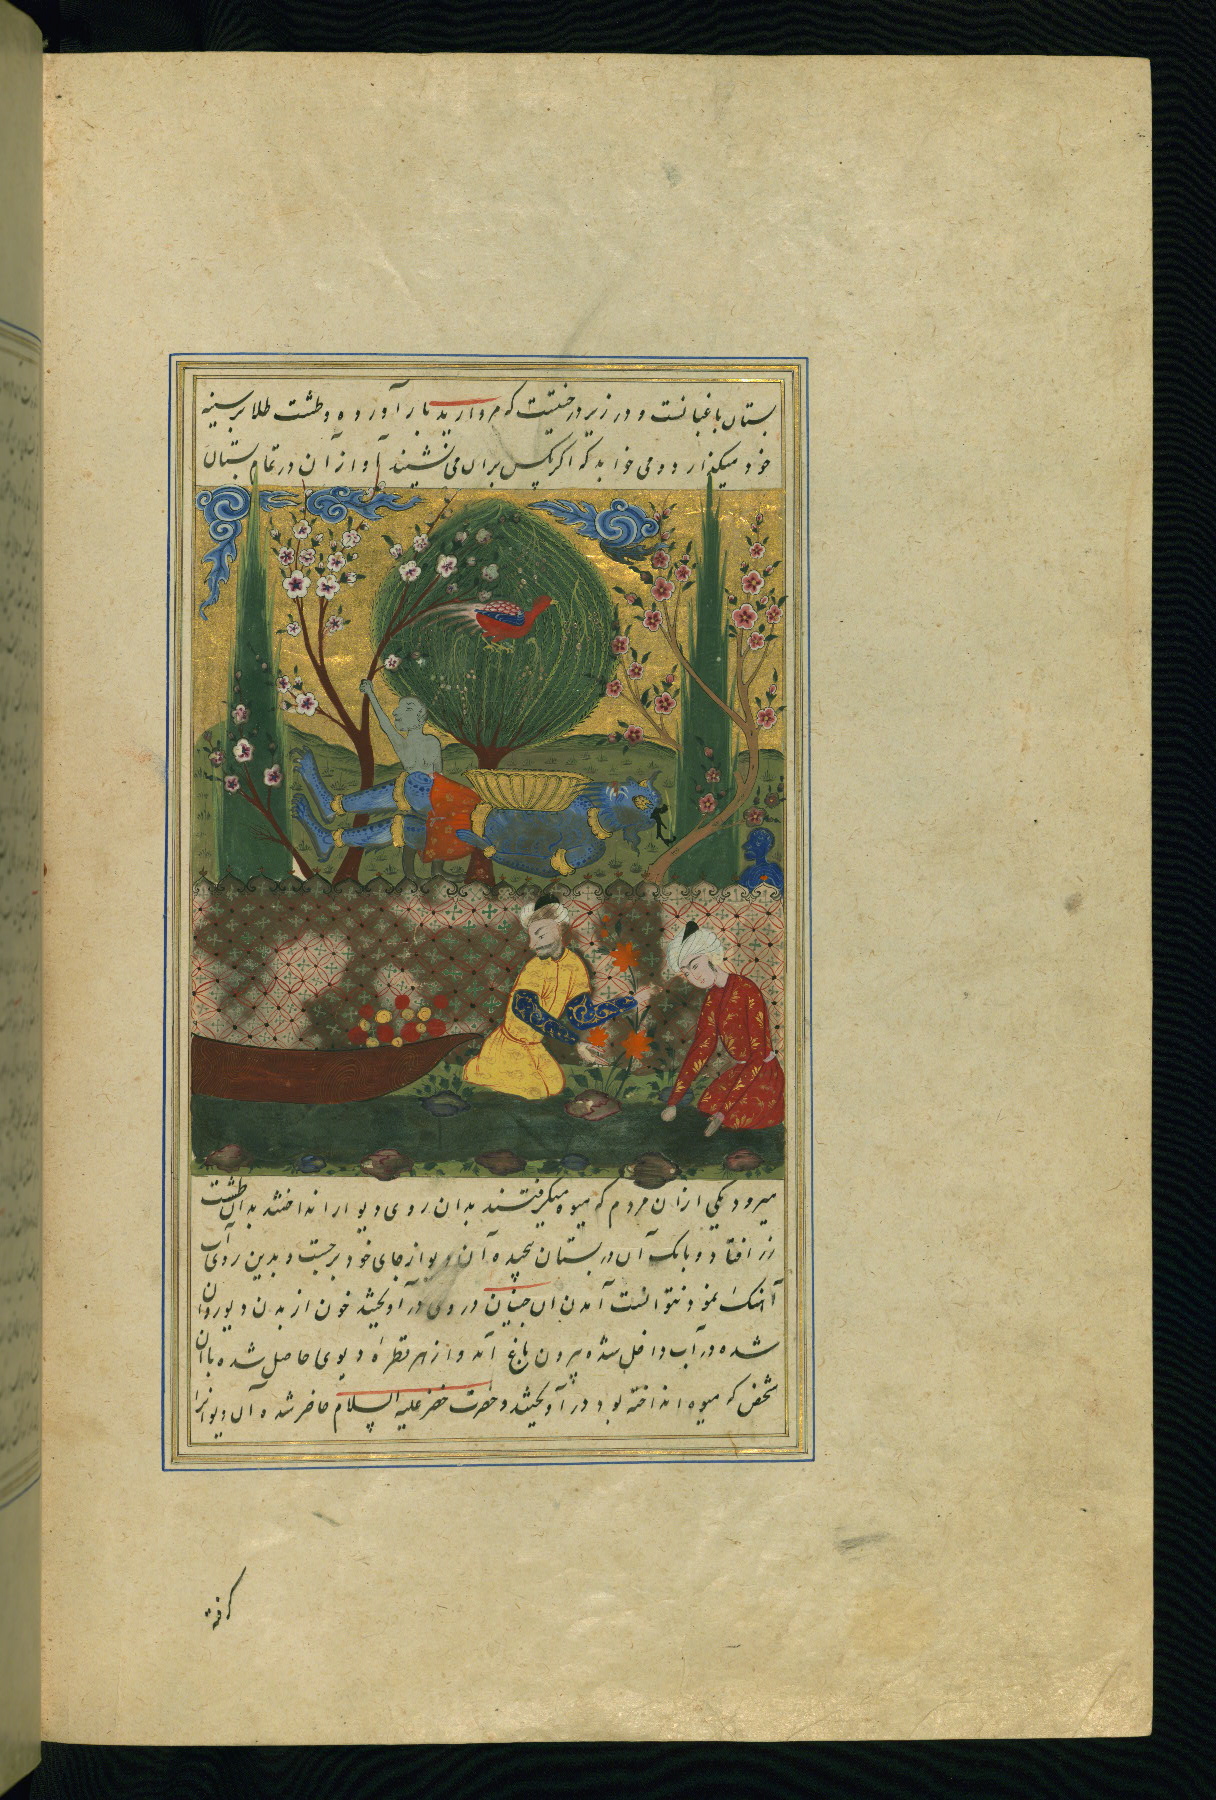 بستان باغبانست و در زیر درختیست که مروارید بار آورده و طشت طلا بر سینه
خود میگذارد و می خوابد که اگر مگس بران می نشیند آواز آن در تمام بستان
میرود یکی ازان مردم که میوه میگرفتند بدان روی دیوار انداختند به آن طشت
زر افتاد و بانک آن در بستان پیچیده آن دیو از جای خود برجست و بدین روی آب
آهنک نمود نتوانست آمدن ان جنیان در وی در آویختند خون از بدن دیو روان
شده در آب داخل شده بیرون باغ آمد و از هر قطره دیوی حاصل شده با آن
شخص که میوه انداخته بود در آویختند و حضرت خضر علیه السلام حاضر شده آن دیوانرا
گرفته